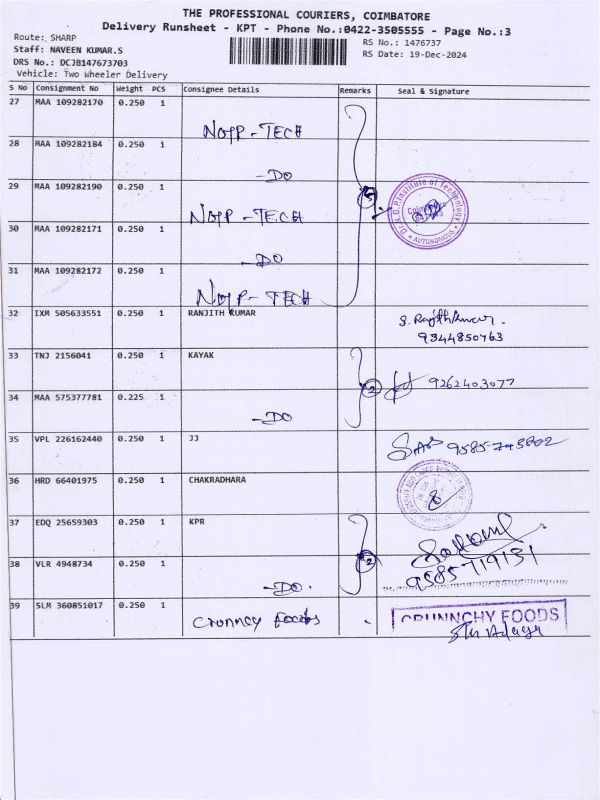 THE PROFESSIONAL COURIERS, COIMBATORE
Delivery Runsheet - KPT - Phone No.:0422-3505555 - Page No.:3
Route: SHARP
RS No.: 1476737
Staff: NAVEEN KUMAR.S
RS Date: 19-Dec-2024
DRS No.: DCJB147673703
Vehicle: Two Wheeler Delivery
S No Consignment No Weight PCS Consignee Details Remarks Seal & Signature
27 MAA 109282170 0.250 1
28 MAA 109282184 0.250 1
-DO
29 MAA 109282190 0.250 1 5
Dr.N.G.P.Institute of Technology
AUTONOMOUS
30 MAA 109282171 0.250 1
-DO
31 MAA 109282172 0.250 1
32 IXM 505633551 0.250 1 RANJITH KUMAR
9344850763
33 TNJ 2156041 0.250 1 KAYAK 2 9262403077
34 MAA 575377781 0.225 1
-DO
35 VPL 226162440 0.250 1 JJ
36 HRD 66401975 0.250 1 CHAKRADHARA
37 EDQ 25659303 0.250 1 KPR
38 VLR 4948734 0.250 1 2 9585719131
-DO.
39 SLM 360851017 0.250 1 Crunncy foods
CRUNNCHY FOODS